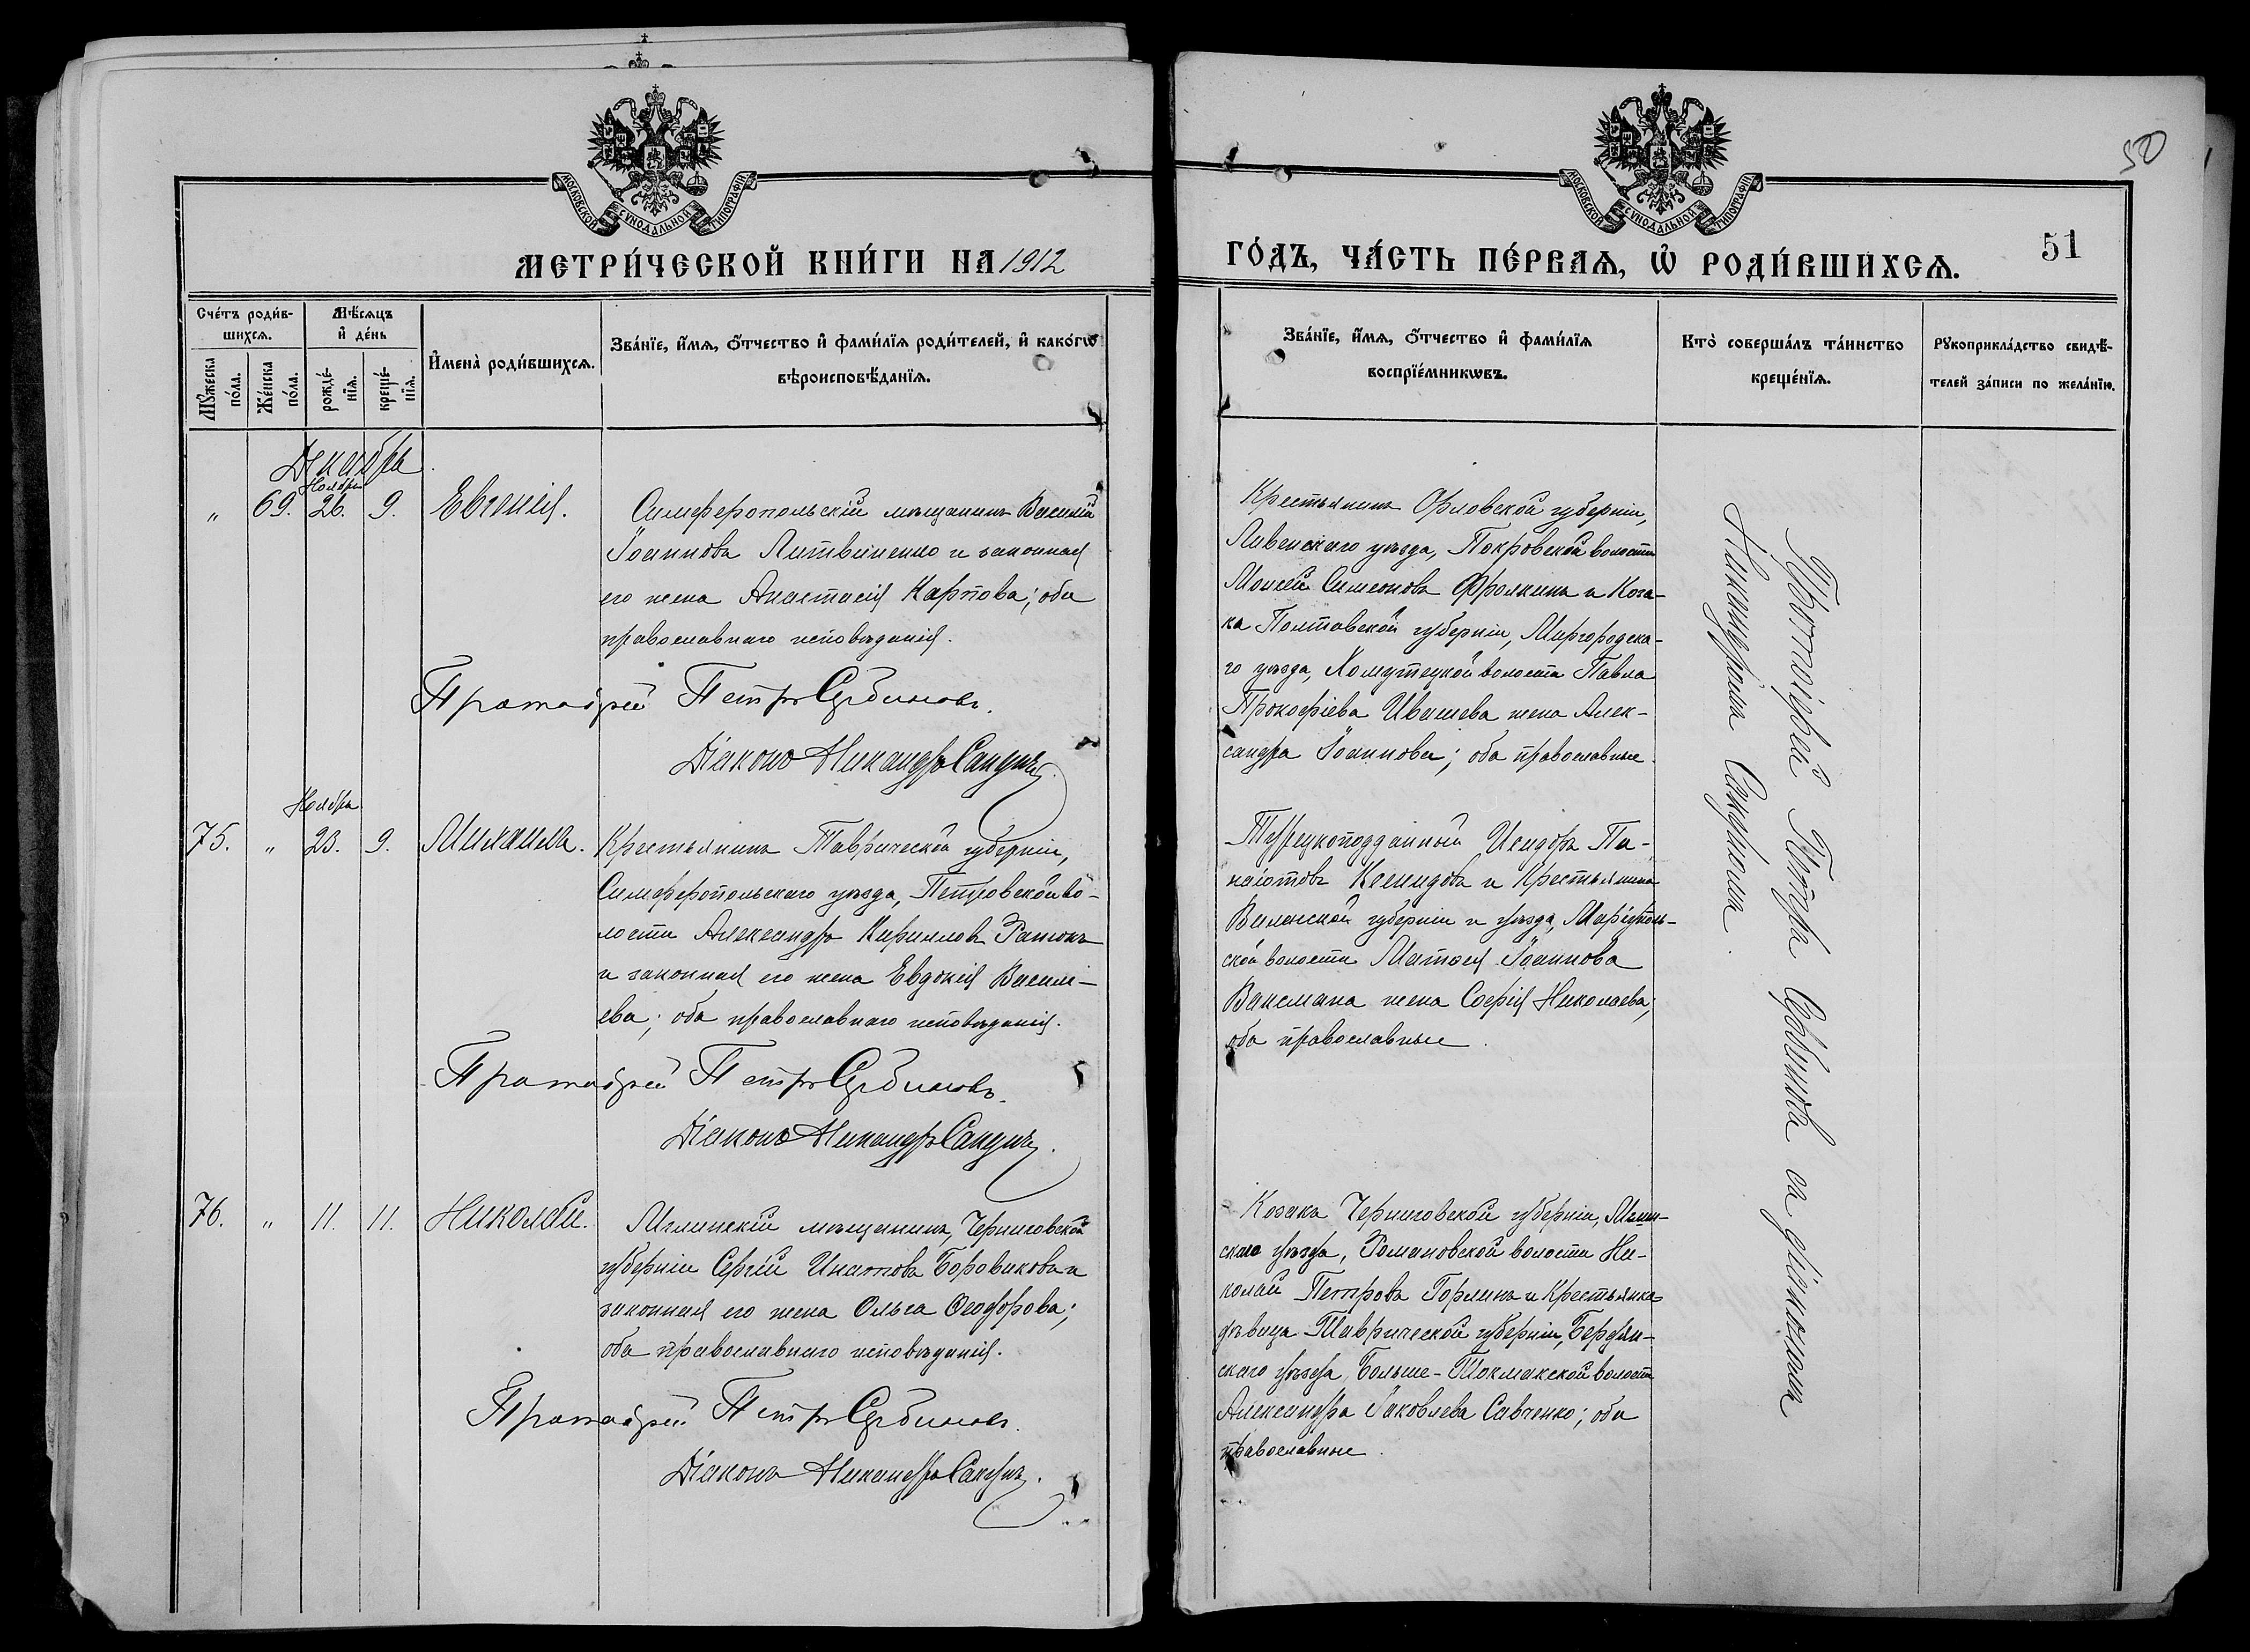 50
МОСКОВСКОЙ СѴНОДАЛЬНОЙ ТИПОГРАФІИ
МОСКОВСКОЙ СѴНОДАЛЬНОЙ ТИПОГРАФІИ
МЕТРИ́ЧЕСКОЙ КНИ́ГИ НА 1912
ГО́ДЪ, ЧА́СТЬ ПЕ́РВАѦ, Ѡ҆ РОДИ́ВШИХСѦ.
51
Сче́тъ роди́в-
шихсѧ.
Мѣ́сѧцъ
и҆ де́нь
Мꙋ́жеска
по́ла.
Же́нска
по́ла.
рожде́-
нїѧ.
креще́-
нїѧ.
И҆мена̀ роди́вшихсѧ.
Зва́нїе, и҆́мѧ, ѻ҆́тчество и҆ фами́лїѧ роди́телей, и҆ како́гѡ
вѣроисповѣ́данїѧ.
Зва́нїе, и҆́мѧ, ѻ҆́тчество и҆ фами́лїѧ
воспрїе́мникѡвъ.
Кто̀ соверша́лъ та́инство
креще́нїѧ.
Рꙋкоприкла́дство свидѣ́-
телей за́писи по жела́нїю.
Декабрь
Ноября
„ 69. 26. 9. Евгенія.
Симферопольскій мѣщанинъ Василій
Іоанновъ Литвиненко и законная
его жена Анастасія Карпова; оба
православнаго исповѣданія.
Протоіерей Петръ Сербиновъ.
Діаконъ Никандръ Сакунъ.
Крестьянинъ Орловской губерніи,
Ливенскаго уѣзда, Покровской волости
Моисей Симеоновъ Фролкинъ и Коза-
ка Полтавской губерніи, Миргородска-
го уѣзда, Хомутецкой волости Павла
Прокофіева Ивашева жена Алек-
сандра Іоаннова; оба православные.
Протоіерей Петръ Сербиновъ съ діакономъ
Никандромъ Сакуномъ.
Ноября
75. „ 23. 9. Михаилъ.
Крестьянинъ Таврической губерніи,
Симферопольскаго уѣзда, Петровской во-
лости Александръ Кирилловъ
и законная его жена Евдокія Василі-
ева; оба православнаго исповѣданія.
Протоіерей Петръ Сербиновъ.
Діаконъ Никандръ Сакунъ.
Турецкоподданный Исидоръ Па-
наіотовъ и Крестьянина
Виленской губерніи и уѣзда,
ской волости Матѳея Іоаннова
Ваксмана жена Софія Николаева;
оба православные.
76. „ 11. 11. Николай.
Мглинскій мѣщанинъ, Черниговской
губерніи Сергій Игнатовъ Боровиковъ и
законная его жена Ольга Ѳеодорова;
оба православнаго исповѣданія.
Протоіерей Петръ Сербиновъ.
Діаконъ Никандръ Сакунъ.
Козакъ Черниговской губерніи, Мглин-
скаго уѣзда, Романовской волости Ни-
колай Петровъ Горлинъ и Крестьянка
дѣвица Таврической губерніи, Бердян-
скаго уѣзда, Больше-Токмакской волости
Александра Іаковлева Савченко; оба
православные.